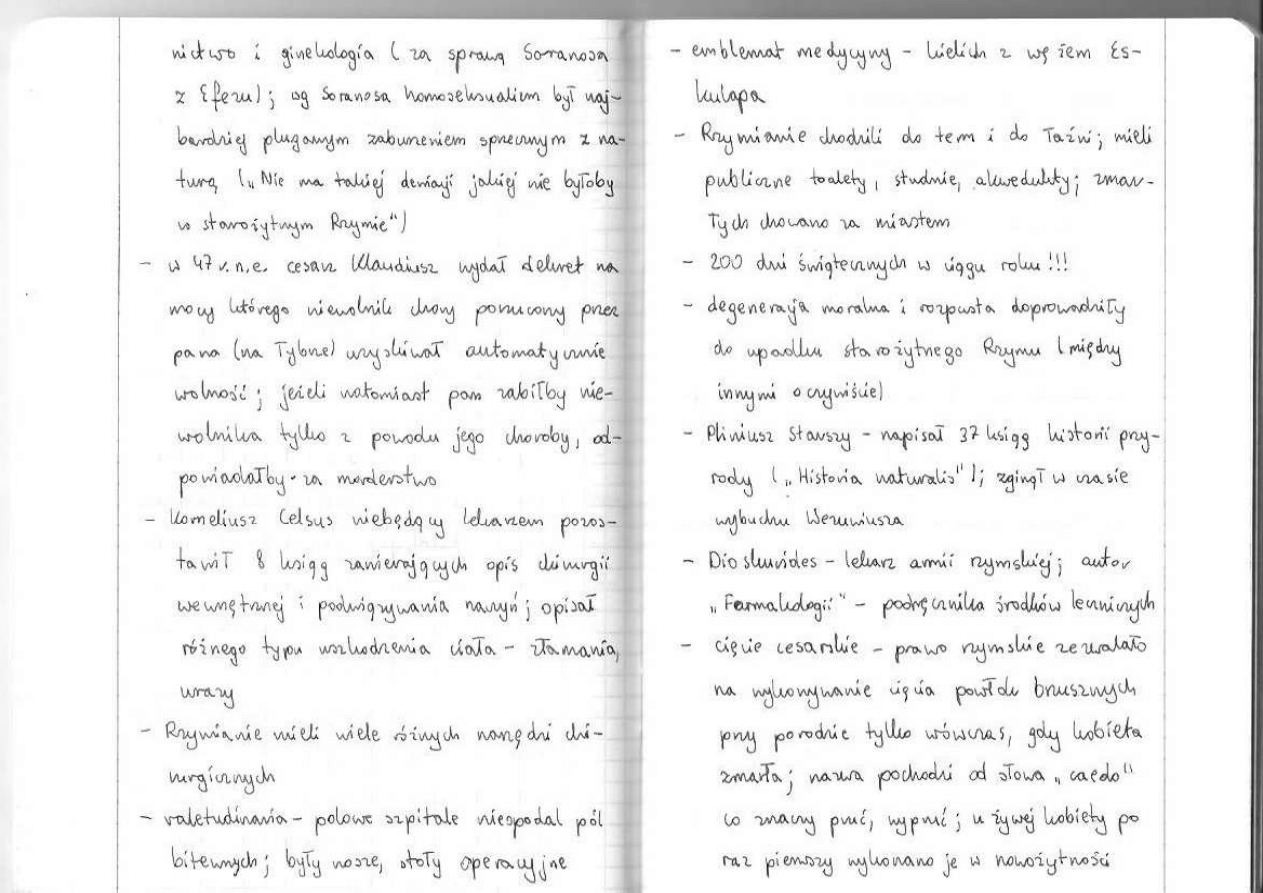 nictwo i ginekologia (za sprawą Soranosa
z Efezu); wg Soranosa homoseksualizm był naj-
bardziej plugawym zaburzeniem sprzecznym z na-
turą („Nie ma takiej dewiacji jakiej nie byłoby
w starożytnym Rzymie")
- w 47 r. n.e. cesarz Klaudiusz wydał dekret na
mocy którego niewolnik chory porzucony przez
pana (na Tybrze) uzyskiwał automatycznie
wolność; jeżeli natomiast pan zabiłby nie-
wolnika tylko z powodu jego choroby, od-
powiadałby za morderstwo
- Korneliusz Celsus niebędący lekarzem pozos-
tawił 8 ksiąg zawierających opis chirurgii
wewnętrznej i podwiązywania naczyń; opisał
różnego typu uszkodzenia ciała - złamania,
urazy
- Rzymianie mieli wiele różnych narzędzi chi-
rurgicznych
- valetudinaria - polowe szpitale nieopodal pól
bitewnych; były nosze, stoły operacyjne
- emblemat medycyny - kielich z wężem Es-
kulapa
- Rzymianie chodzili do term i do łaźni; mieli
publiczne toalety, studnie, akwedukty; zmar-
łych chowano za miastem
- 200 dni świątecznych w ciągu roku!!!
- degeneracja moralna i rozpusta doprowadziły
do upadku starożytnego Rzymu (między
innymi oczywiście)
- Pliniusz Starszy - napisał 37 ksiąg historii przy-
rody („Historia naturalis"); zginął w czasie
wybuchu Wezuwiusza
- Dioskurides - lekarz armii rzymskiej; autor
„Farmakologii" - podręcznika środków leczniczych
- cięcie cesarskie - prawo rzymskie zezwalało
na wykonywanie cięcia powłok brzusznych
przy porodzie tylko wówczas, gdy kobieta
zmarła; nazwa pochodzi od słowa „caedo"
co znaczy pruć, wypruć; u żywej kobiety po
raz pierwszy wykonano je w nowożytności